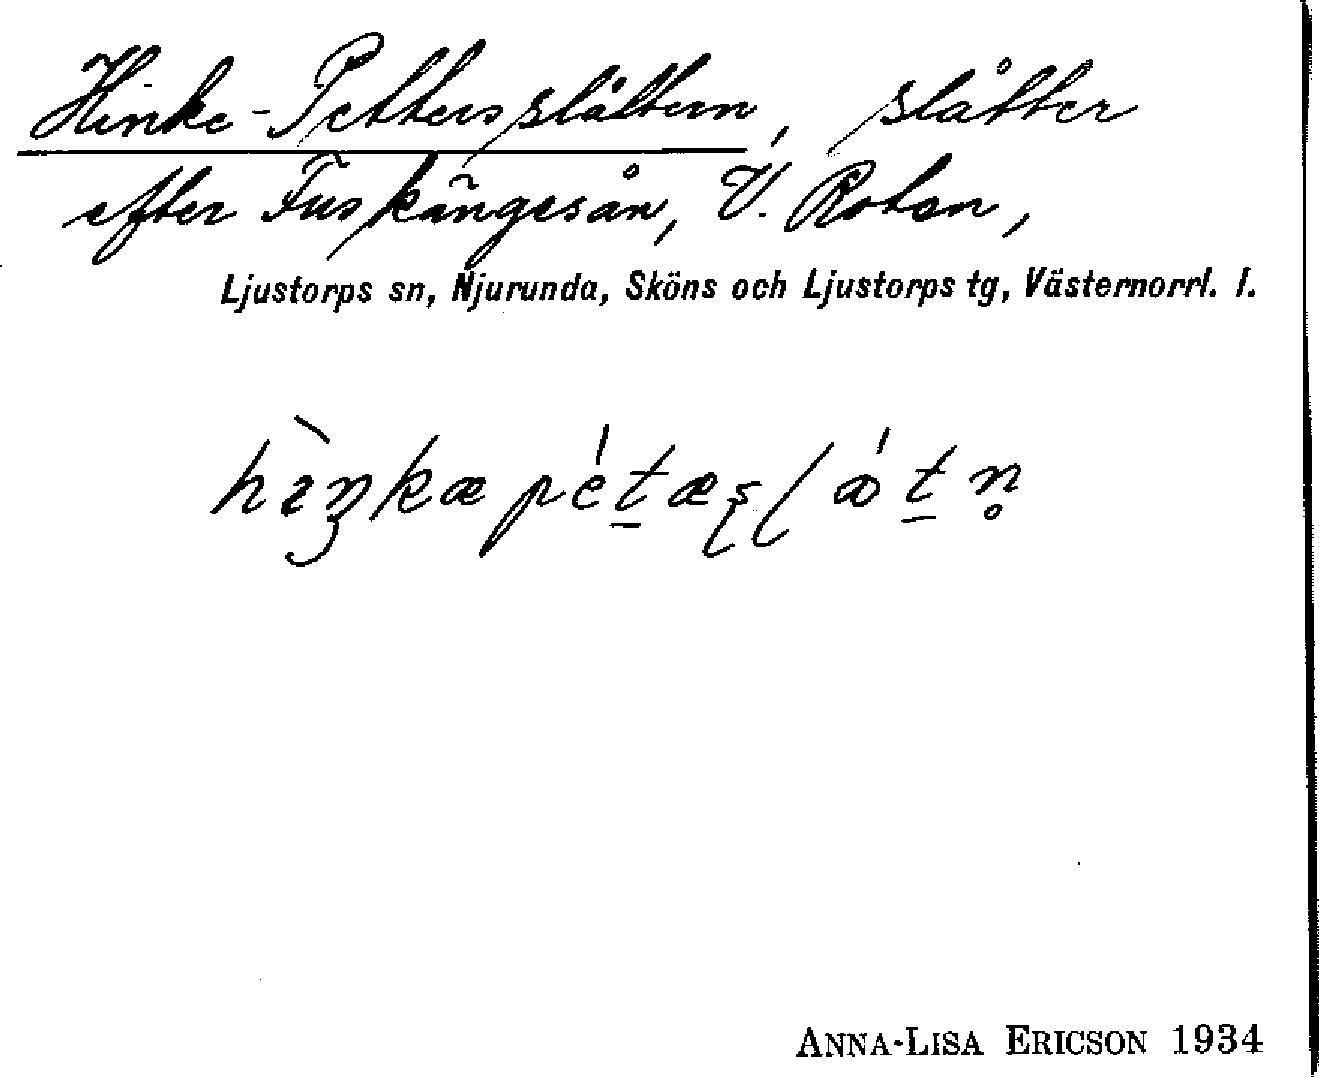 Hinke-Pettersslåttern, slåtter
efter Fuskängesån, V. Roten,
Ljustorps sn, Njurunda, Sköns och Ljustorps tg, Västernorrl. l.
ANNA-LISA ERICSON 1934